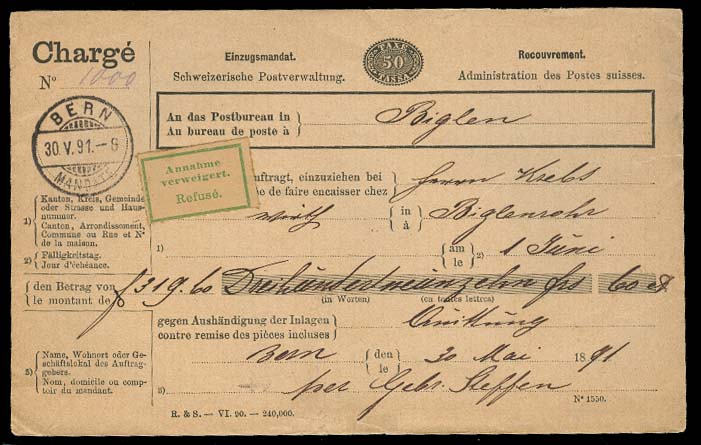 Chargé
Nº 1000
Einzugsmandat.
Schweizerische Postverwaltung.
TAXE
50
TASSA
Recouvrement.
Administration des Postes suisses.
BERN
30.V.91.-8
MANDATE
An das Postbureau in
Au bureau de poste à
Biglen
Annahme
verweigert.
Refusé.
uftragt, einzuziehen bei
de faire encaisser chez
Herrn Krebs
1) Kanton, Kreis, Gemeinde
oder Strasse und Haus-
nummer.
Canton, Arrondissement,
Commune ou Rue et Nº
de la maison.
wirth
in
à
Biglenrohr
1)
2) Fälligkeitstag.
Jour d'échéance.
am
le
2)
1 Juni
den Betrag von
le montant de
f 319.60 Dreihundertneunzehn frs 60 ct
(in Worten) (en toutes lettres)
gegen Aushändigung der Inlagen
contre remise des pièces incluses
Quittung
3) Name, Wohnort oder Ge-
schäftslokal des Auftrag-
gebers.
Nom, domicile ou comp-
toir du mandant.
Bern
den
le
30 Mai 1891
3)
per Gebr. Steffen
R. & S. — VI. 90. — 240,000.
Nº 1550.